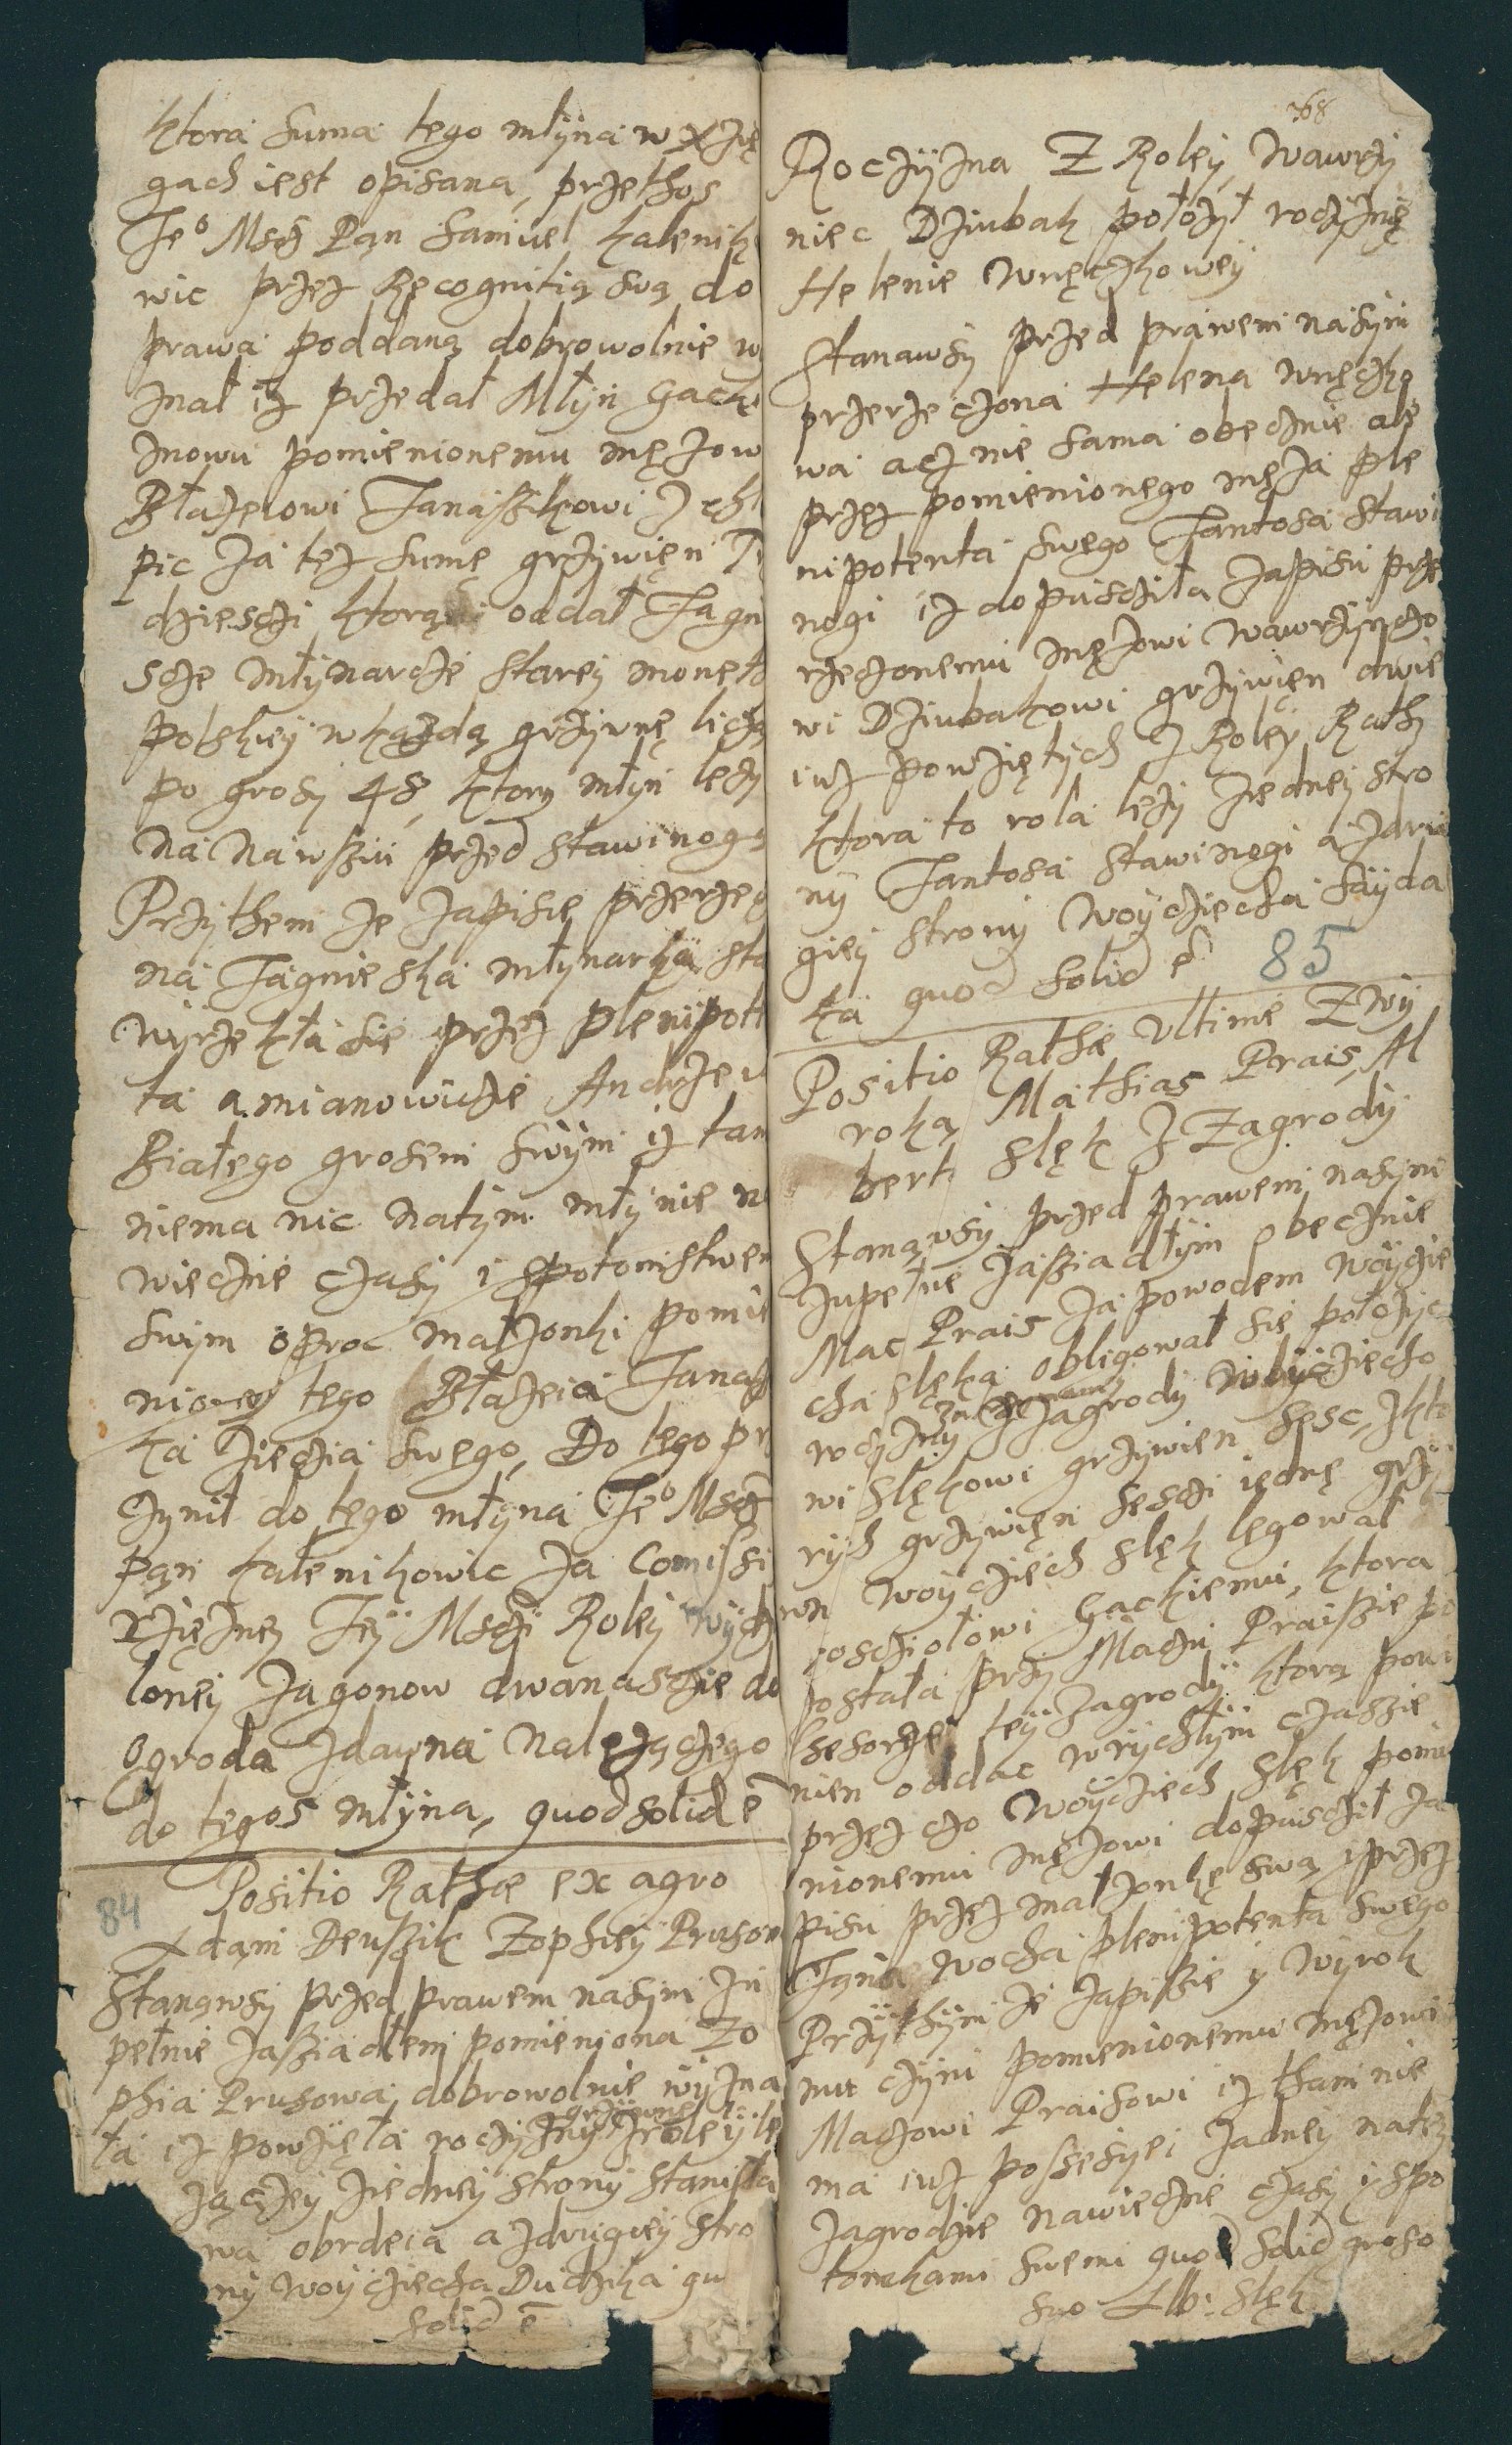 ktora suma tego młyna w xię
gach iest opisana, przethos
Je⁰ Msc Pan Samuel kalenik
wic przez Recognitią swą do
prawa poddaną dobrowolnie w
znał isz przedał Młyn Gack
znowu pomienionemu mężow
Błażeiowi Janaszkowi
pic za tez sumę grzywien
dziesczi ktorą oddał Jagni
scze młynarcze starey monet
polskiey w kazdą grzywnę licżą
po grosy 48, ktory młyn leży
na nawsziu przed stawinogą
Przythem ze zapisie przerze
na Jagnieska młynarka sta
wyrzekła sie przez plenipot
ta a mianowicie Andrzew
Białego grosem swym isz tam
niema nic natym młynie n
wieczne czasy i spotomstwem
swym oproc małzonki pomie
nioneg tego Błażeia Janasz
ka zieczia swego, Do tego pr
czynił do tego młyna Je⁰ Msc
pan kalenikowic za Comissi
xziężney Jey Msczi Roley
loney zagonow dwanascie do
Ogroda zdawna należączego
do tegos młyna, quod solid ē
84
Positio Rathæ ex agro
Adam Deuszik Zophiey Pruson
Stanąwsy przed prawem nasym zu
pełnie zasziadłem pomieniona Zo
phia Prusowa dobrowolnie wyzna
ła isz powzięła roczyzny grzywnę zroley le
zączey ziedney strony Stanisła
wa obrdeia a zdrugiey stro
ny woycziecha Duchika qu
solid ē
168
Roczyzna Z Roley, wawrzy
niec Dziubak położył rocżyznę
Helenie wnęczkowey
Stanawsy przed prawem nasym
przerzeczona Helena wnęczko
wa acz nie sama obecznie ale
przez pomienionego męża ple
nipotenta swego Jantosa stawi
nogi isz dopusciła zapisu prze
rzeczonemu mężowi wawrzyńczo
wi Dziubakowi grzywien dwie
iuz powziętych z Roley Rath
ktora to rola leży ziedney stro
ny Jantosa stawinogi a zdru
giey strony woycziecha sayda
ka quod solid ē
85
Positio Rathæ Vltimæ Zwy
roką Mathias Prais, Al
bert Slęk z Zagrody
Stanąwsy przed prawem nasym
zupełne zasziadłym obecznie
Mac Prais za powodem woycie
cha slęka obligował sie położyc
roczyzny zagrody woyciecho
wi slękowi grzywien sesc, zkto
rych grzywien sesczi iednę grzy
wn woycziech slęk legował
cosciołowi Gackiemu, ktora
została przy Maczu Praiszie po
sesorze tey zagrody ktorą powi
nien oddac wrychłym czaszie
przez czo woyciech slęk pomie
nionemu mężowi dopuscził za
pisu przez małzonkę swą i przez
Jana wocha plenipotenta swego
Przythym ze zapiszie y wyrok
mu czyni pomienionemu mężowi
Maczowi Praisowi isz tham nie
ma iuz possesyei żadney natey
zagrodzie nawieczne czasy y spo
tomkami swemi quod solid groso
suo Alb: Slęk